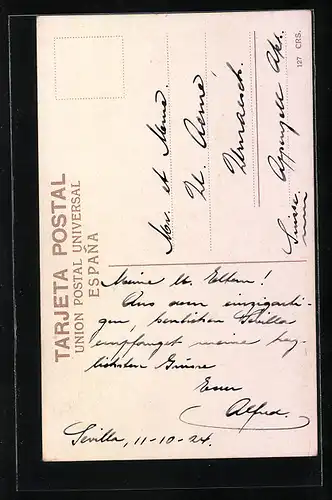 TARJETA POSTAL
UNION POSTAL UNIVERSAL
ESPAÑA
127 CRS.
Mon. et Mme.
Urnaesch.
Appenzell
Suisse
Meine lb. Eltern!
Aus dem einzigarti-
gen, herrlichen Sevilla
empfanget meine herz-
lichsten Grüsse
Euer
Alfred.
Sevilla, 11-10-24.